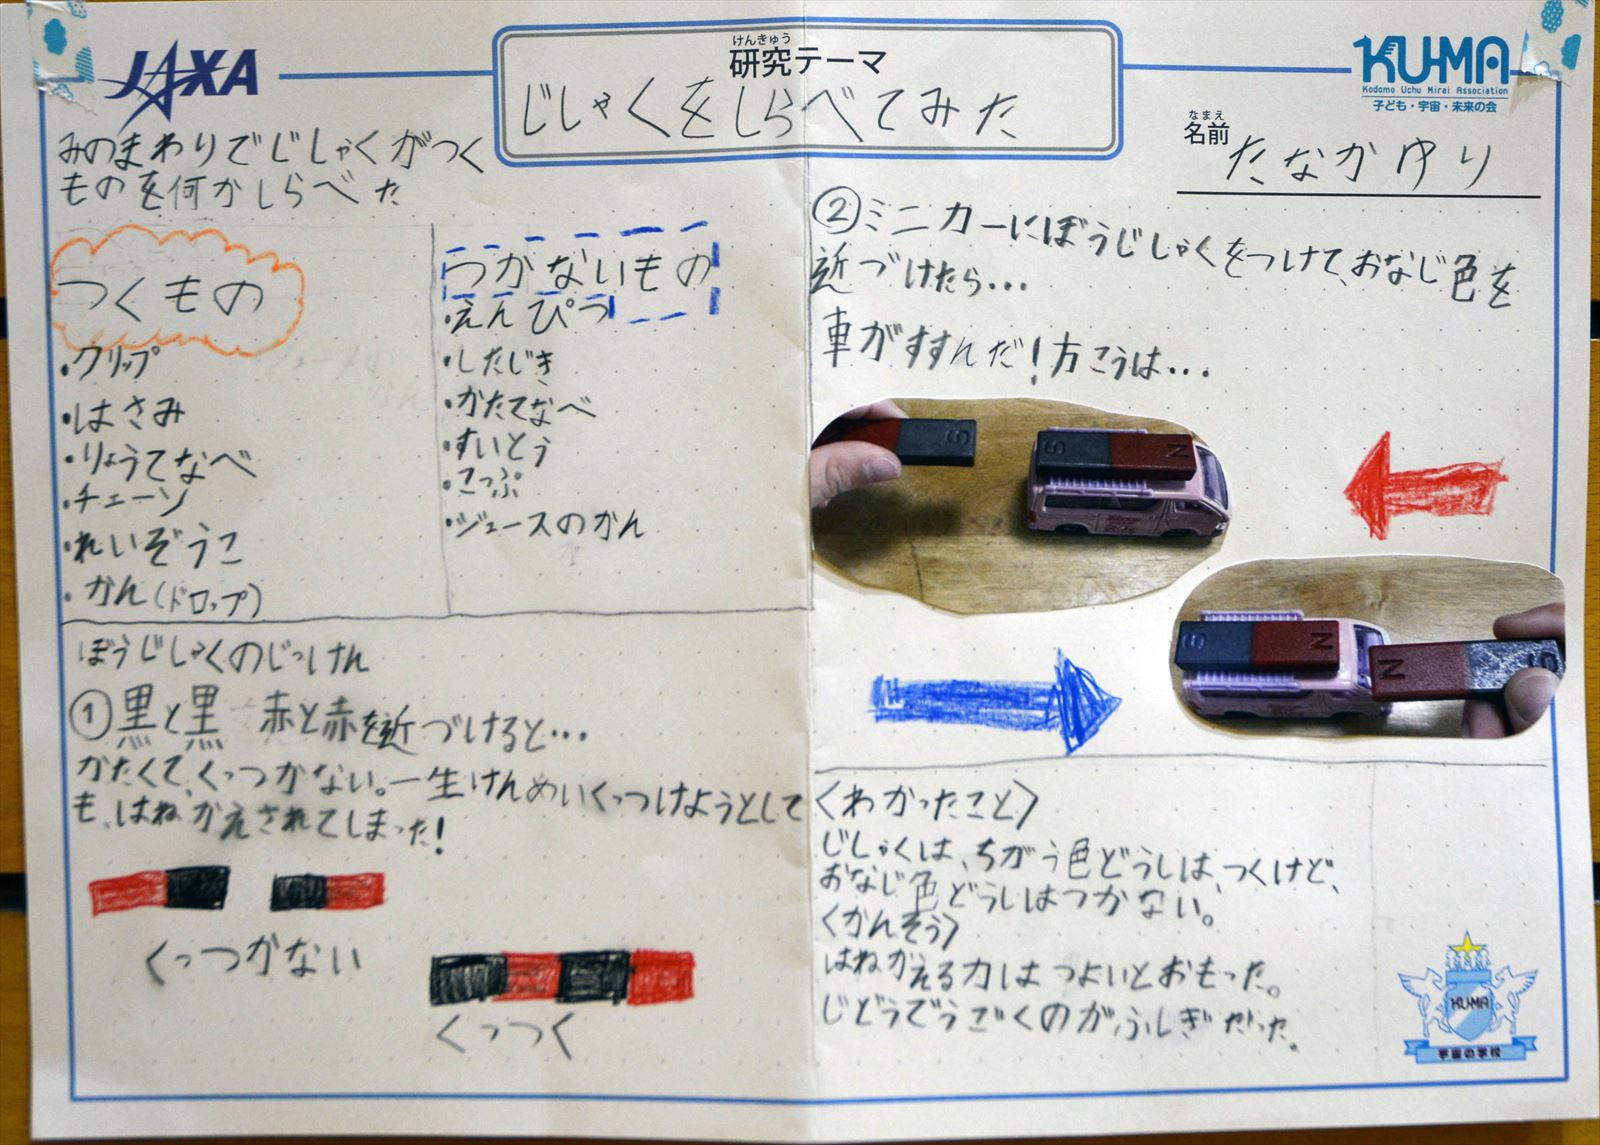 JAXA
けんきゅう
研究テーマ
じしゃくをしらべてみた
KU-MA
Kodomo Uchu Mirai Association
子ども・宇宙・未来の会
なまえ
名前 たなかゆり
みのまわりでじしゃくがつく
ものを何かしらべた
つくもの
・クリップ
・はさみ
・りょうてなべ
・チェーン
・れいぞうこ
・かん(ドロップ)
つかないもの
・えんぴつ
・したじき
・かたてなべ
・すいとう
・こっぷ
・ジュースのかん
ぼうじしゃくのじっけん
①黒と黒 赤と赤を近づけると…
かたくて、くっつかない。一生けんめいくっつけようとして
も、はねかえされてしまった!
くっつかない
くっつく
②ミニカーにぼうじしゃくをつけて、おなじ色を
近づけたら…
車がすすんだ!方こうは…
S
S N
S N
N S
〈わかったこと〉
じしゃくは、ちがう色どうしは、つくけど、
おなじ色どうしはつかない。
〈かんそう〉
はねかえる力はつよいとおもった。
じどうでうごくのが、ふしぎだった。
KU-MA
宇宙の学校